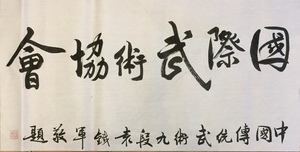 國際武術協會
中國傳統武術九段袁鏹軍敬題